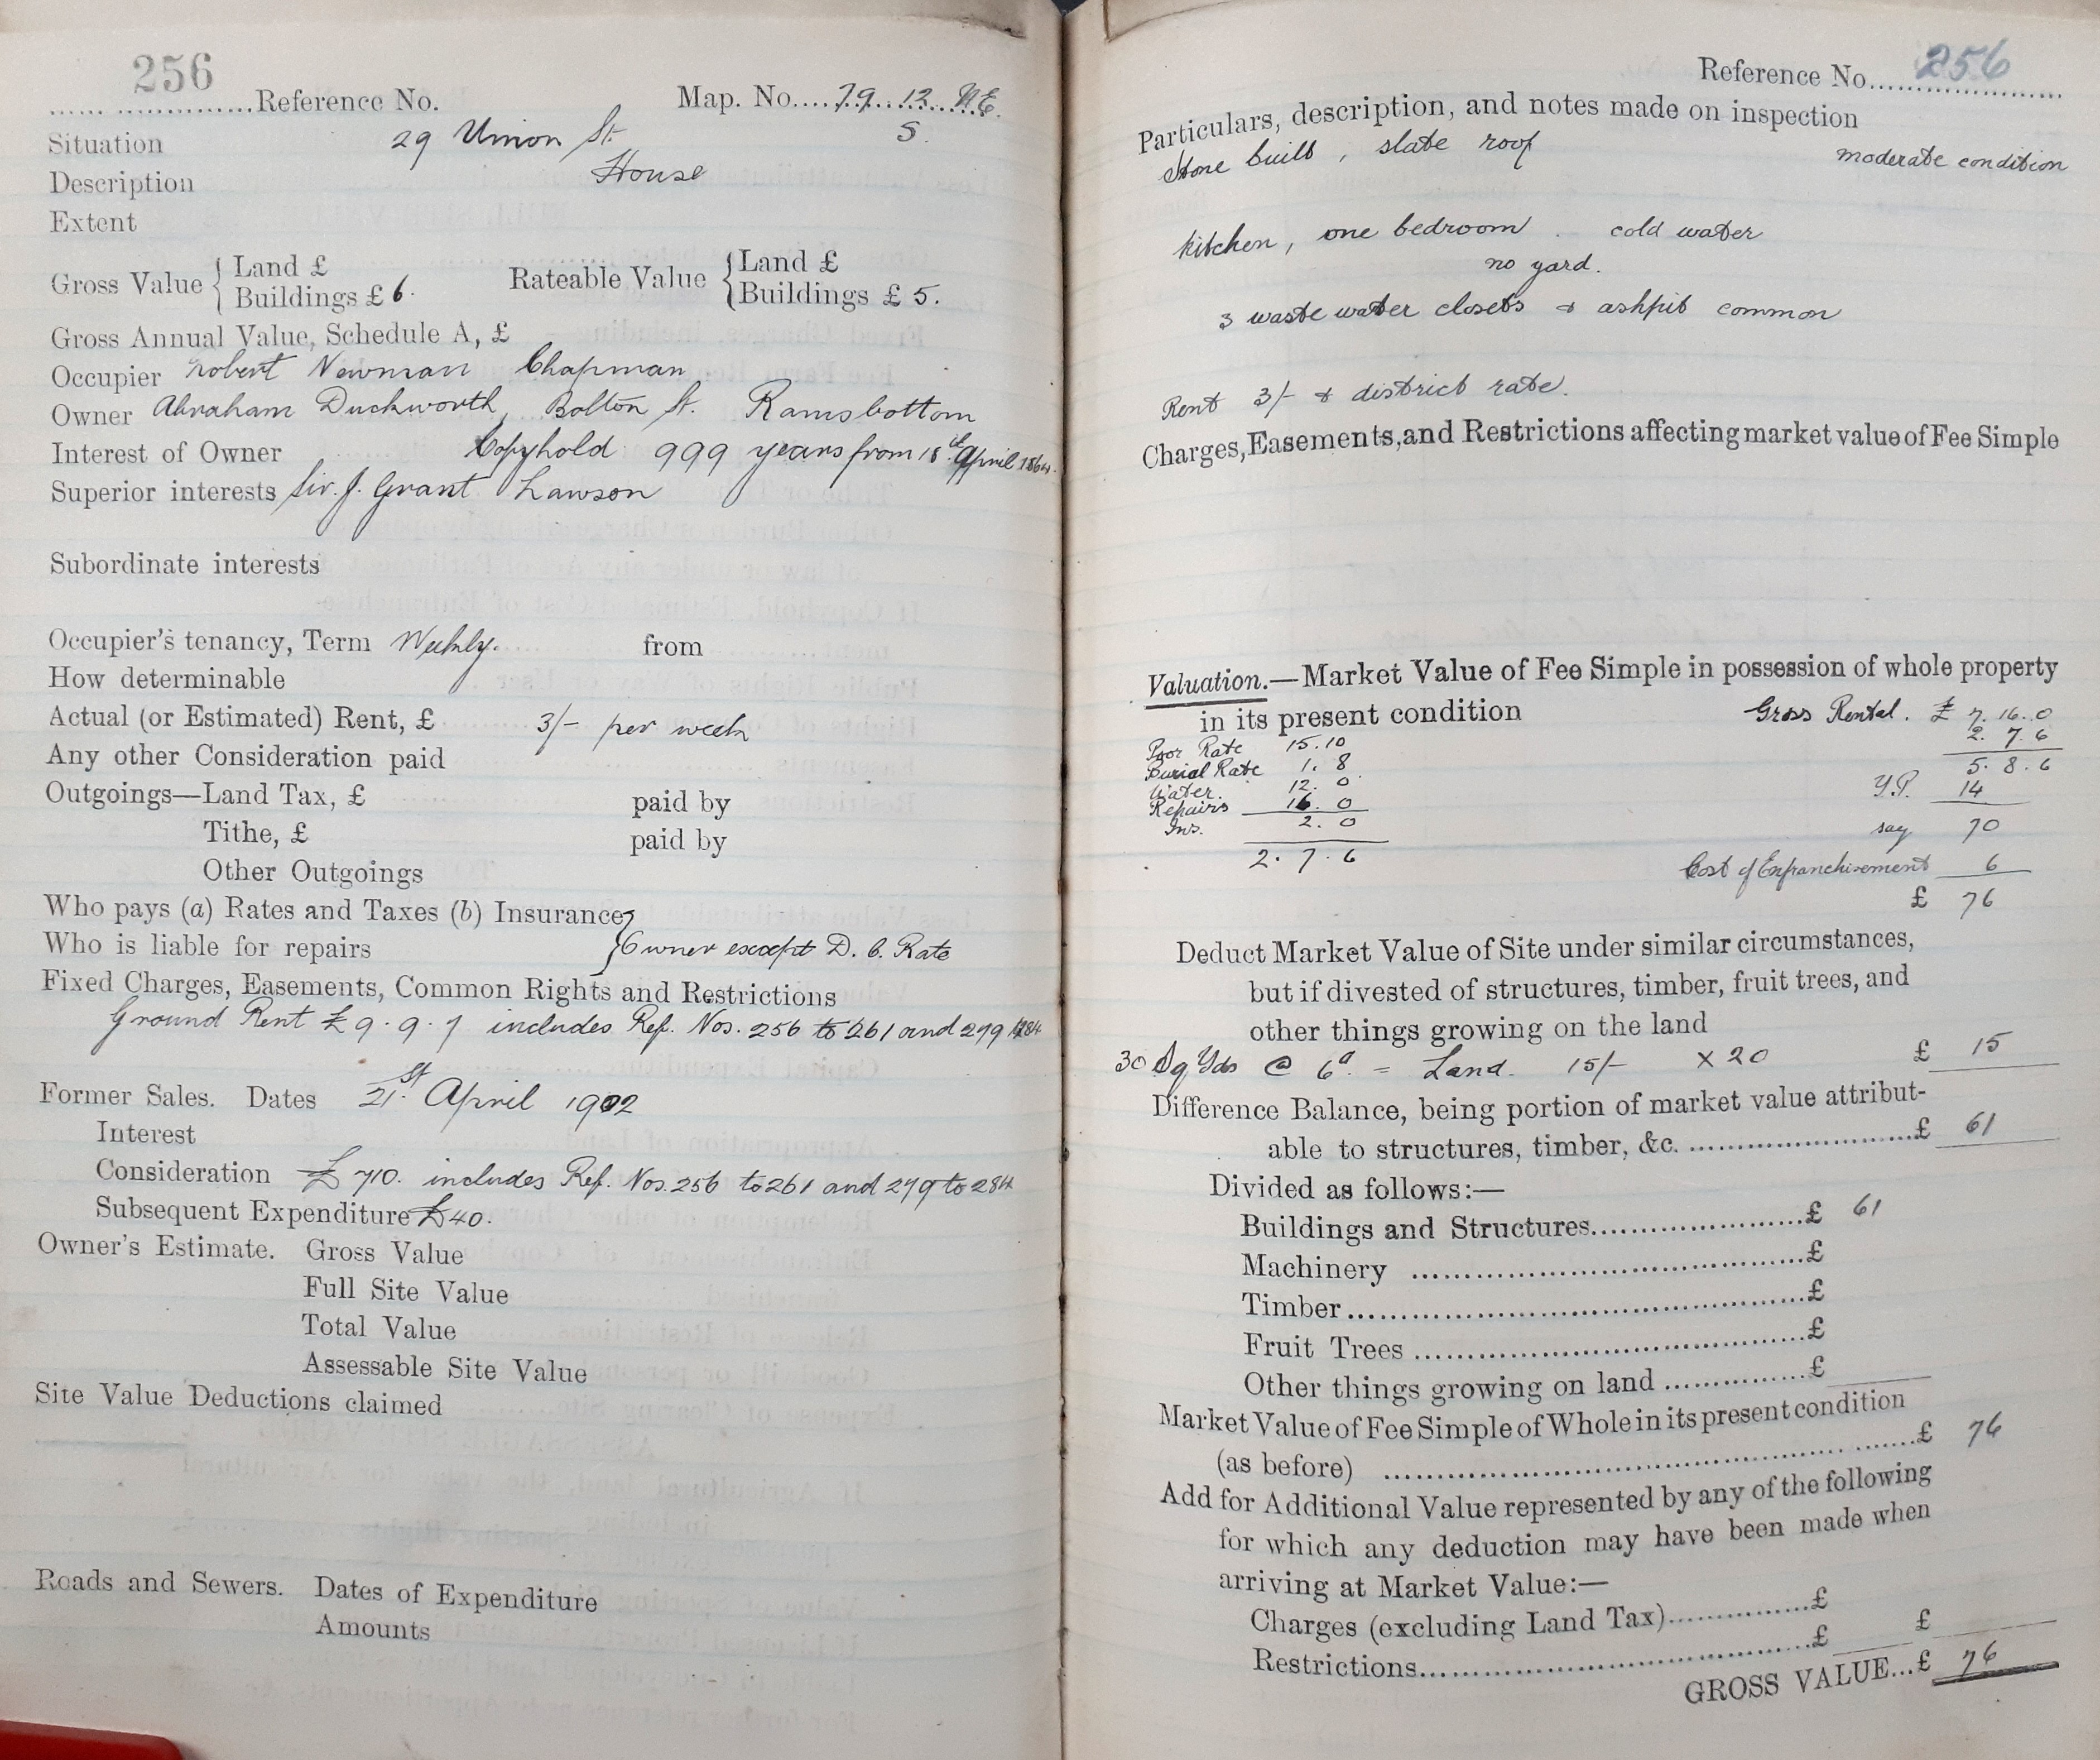 256
...... ..............Reference No. Map. No....79..12. N.E.
Situation 29 Union St. S.
Description House
Extent
Gross Value { Land £ Rateable Value { Land £
Buildings £ 6. Buildings £ 5.
Gross Annual Value, Schedule A, £
Occupier Robert Newman Chapman
Owner Abraham Duckworth, Bolton St. Ramsbottom
Interest of Owner Copyhold 999 years from 18th April 1864.
Superior interests Sir. J. Grant Lawson
Subordinate interests
Occupier's tenancy, Term Weekly. from
How determinable
Actual (or Estimated) Rent, £ 3/- per week
Any other Consideration paid
Outgoings—Land Tax, £ paid by
Tithe, £ paid by
Other Outgoings
Who pays (a) Rates and Taxes (b) Insurance }
Who is liable for repairs } Owner except D. C. Rate
Fixed Charges, Easements, Common Rights and Restrictions
Ground Rent £9.9.7 includes Ref. Nos. 256 to 261 and 279 to 284
Former Sales. Dates 21st April 1902
Interest
Consideration £710. includes Ref. Nos. 256 to 261 and 279 to 284
Subsequent Expenditure £40.
Owner's Estimate. Gross Value
Full Site Value
Total Value
Assessable Site Value
Site Value Deductions claimed
Roads and Sewers. Dates of Expenditure
Amounts
Reference No. 256
Particulars, description, and notes made on inspection
Stone built, slate roof moderate condition
kitchen, one bedroom . cold water
no yard.
3 waste water closets & ashpit common
Rent 3/- & district rate.
Charges, Easements, and Restrictions affecting market value of Fee Simple
Valuation.—Market Value of Fee Simple in possession of whole property
in its present condition Gross Rental. £ 7.16.0
Poor Rate 15.10 2. 7.6
Burial Rate 1. 8 5. 8.6
Water. 12. 0 Y.P. 14
Repairs 16. 0
Ins. 2. 0 say 70
2. 7. 6 Cost of Enfranchisement 6
£ 76
Deduct Market Value of Site under similar circumstances,
but if divested of structures, timber, fruit trees, and
other things growing on the land
30 Sq Yds @ 6d. = Land. 15/- x 20 £ 15
Difference Balance, being portion of market value attribut-
able to structures, timber, &c. ..........................£ 61
Divided as follows:—
Buildings and Structures........................£ 61
Machinery ............................................£
Timber....................................................£
Fruit Trees ............................................£
Other things growing on land ................£
Market Value of Fee Simple of Whole in its present condition
(as before) ......................................................£ 76
Add for Additional Value represented by any of the following
for which any deduction may have been made when
arriving at Market Value:—
Charges (excluding Land Tax)................£
Restrictions..............................................£ £
GROSS VALUE...£ 76